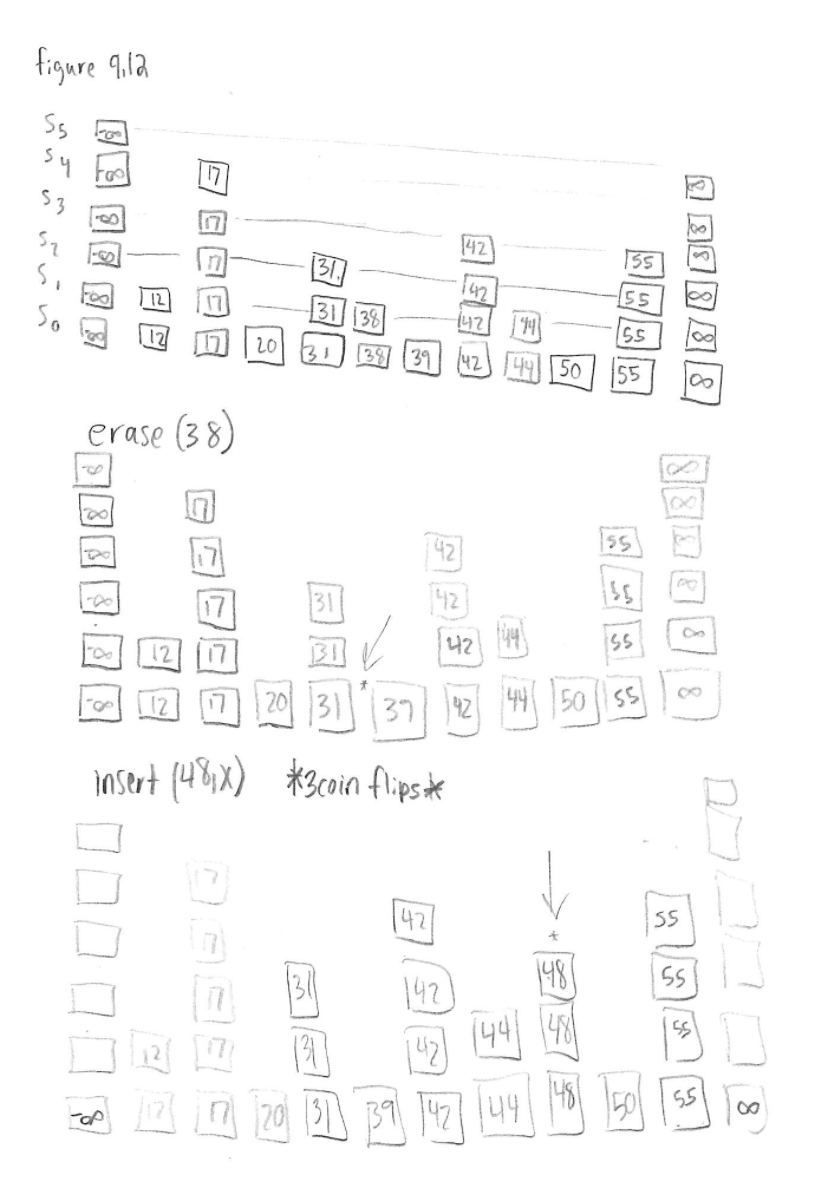 figure 9.12
S5 -∞
S4 -∞ 17 ∞
S3 -∞ 17 42 55 ∞
S2 -∞ 17 31 42 55 ∞
S1 -∞ 12 17 31 38 42 44 55 ∞
S0 -∞ 12 17 20 31 38 39 42 44 50 55 ∞
erase (38)
-∞ ∞
-∞ 17 ∞
-∞ 17 42 55 ∞
-∞ 17 31 42 55 ∞
-∞ 12 17 31 42 44 55 ∞
-∞ 12 17 20 31 * 39 42 44 50 55 ∞
insert (48,X) *3coin flips*
17
17 42 55
*
17 31 42 48 55
12 17 31 42 44 48 55
-∞ 12 17 20 31 39 42 44 48 50 55 ∞